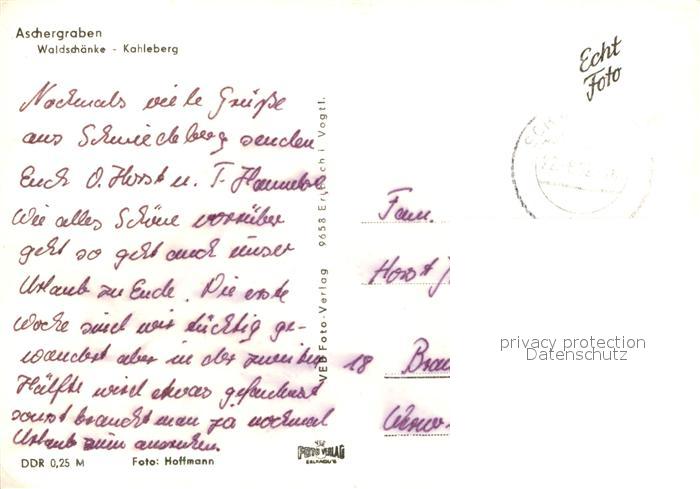 Aschergraben
Waldschänke - Kahleberg
Echt
Foto
Nochmals viele Grüße
aus Schmiedeberg senden
Euch O. Horst u. T. Hannelore
Wie alles Schöne vorrüber
geht so geht auch unser
Urlaub zu Ende. Die erste
Woche sind wir tüchtig ge-
wandert aber in der zweiten
Hälfte wird etwas gefaulenzt
sonst braucht man ja nochmal
Urlaub zum ausruhen.
DDR 0,25 M
Foto: Hoffmann
VEB Foto-Verlag 9658 Erlbach i Vogtl.
FOTO VERLAG
Fam.
Horst
18
Werner
privacy protection
Datenschutz